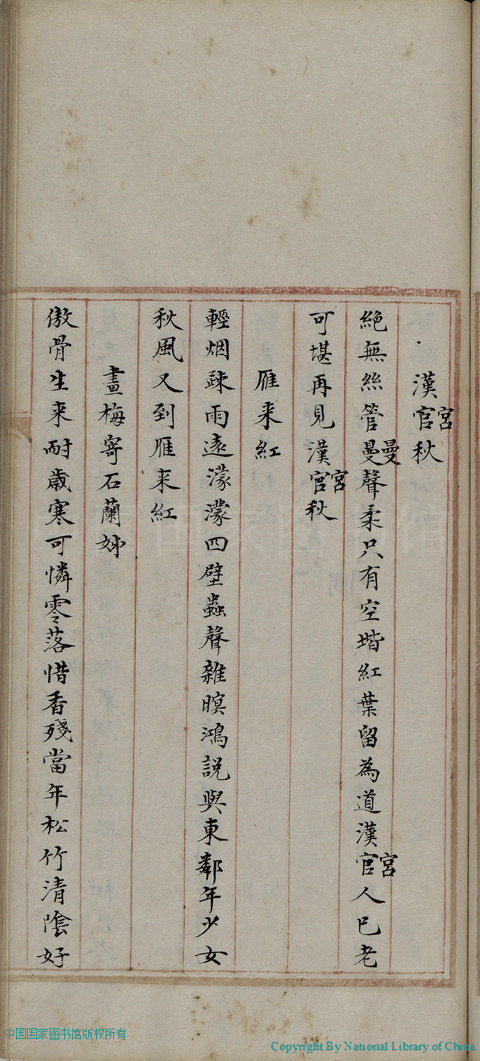 漢官宮秋
絶無絲管曼曼聲柔只有空堦紅葉留為道漢官宮人已老
可堪再見漢官宮秋
雁来紅
輕烟疎雨遠濛濛四壁蟲聲雜暝鴻説與東鄰年少女
秋風又到雁来紅
畫梅寄石蘭姊
傲骨生来耐歲寒可憐零落惜香殘當年松竹清陰好
中国国家图书馆版权所有
Copyright By National Library of China